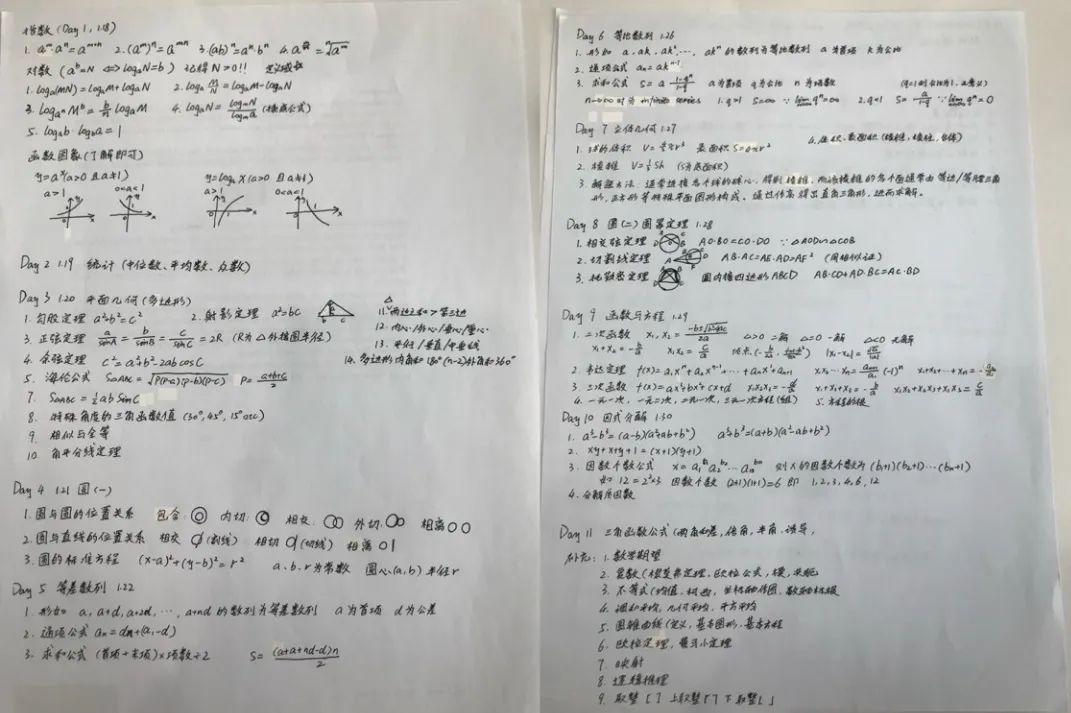 指数 (Day 1, 1.18)
1. aᵐ·aⁿ=aᵐ⁺ⁿ 2.(aᵐ)ⁿ=aᵐⁿ 3.(ab)ⁿ=aⁿ·bⁿ 4.
对数 (aᵇ=N ⟺ logₐN=b) 记得 N>0!! 定义域
1. logₐ(MN)=logₐM+logₐN 2. logₐ M/N = logₐM-logₐN
3. M = b/n logₐM 4. logₐN = logₘN/logₘa (换底公式)
5. logₐb·log_b a = 1
函数图象(了解即可)
y=aˣ(a>0 且 a≠1) y=logₐX (a>0 且 a≠1)
a>1 0<a<1 a>1 0<a<1
Day 2 1.19 统计 (中位数、平均数、众数)
Day 3 1.20 平面几何 (多边形)
1. 勾股定理 a²+b²=c² 2. 射影定理 a²=bc
3. 正弦定理 a/sinA = b/sinB = c/sinC = 2R (R为△外接圆半径)
4. 余弦定理 c²=a²+b²-2ab cosC
5. 海伦公式 S△ABC=√P(P-a)(P-b)(P-c) P= a+b+c/2
7. S△ABC=½ab SinC
8. 特殊角度的三角函数值 (30°,45°,15° etc)
9. 相似与全等
10. 角平分线定理
11. 两边之和 > 第三边
12. 内心/外心/垂心/重心
13. 平分/垂直/中垂线
14. 多边形内角和 180°(n-2) 外角和 360°
Day 4 1.21 圆 (一)
1. 圆与圆的位置关系 包含: 内切: 相交: 外切: 相离
2. 圆与直线的位置关系 相交 (割线) 相切 (切线) 相离
3. 圆的标准方程 (x-a)²+(y-b)²=r² a、b、r为常数 圆心(a,b) 半径r
Day 5 等差数列 1.22
1. 形如 a, a+d, a+2d, …, a+nd 的数列为等差数列 a为首项 d为公差
2. 通项公式 aₙ=dn+(a₁-d)
3. 求和公式 (首项+末项)×项数÷2 S= (a+a+nd-d)n/2
Day 6 等比数列 1.26
1. 形如 a, ak, ak², …, akⁿ 的数列为等比数列 a为首项 k为公比
2. 通项公式 aₙ=akⁿ⁻¹
3. 求和公式 S=a 1-qⁿ/1-q a为首项 q为公比 n为项数
n→∞ 时为 infinite series 1.q>1 S=∞ ∵ lim qⁿ=∞ 2.q<1 S= a/1-q ∵ lim qⁿ=0
Day 7 立体几何 1.27
1. 球的体积 V=4/3πr³ 表面积 S=4πr²
4. 体积、表面积 (棱锥, 棱柱, 台体)
2. 棱锥 V=⅓Sh (S为底面积)
3. 解题方法: 通常连接各个球的球心, 得到棱锥, 而该棱锥的各个面通常由等边/等腰三角
形,正方形等特殊平面图形构成。通过作高得出直角三角形,进而求解。
Day 8 圆(二)圆幂定理 1.28
1. 相交弦定理 AO·BO=CO·DO ∵△AOD∽△COB
2. 切割线定理 AB·AC=AE·AD=AF² (用相似证)
3. 托勒密定理 圆内接四边形 ABCD AB·CD+AD·BC=AC·BD
Day 9 函数与方程 1.29
1. 二次函数 X₁,X₂= -b±√b²-4ac/2a △>0 二解 △=0 一解 △<0 无解
X₁+X₂=-b/a X₁X₂=c/a 顶点
2. 韦达定理
3. 三次函数 f(x)=ax³+bx²+cx+d X₁X₂X₃=-d/a X₁+X₂+X₃=-b/a X₁X₂+X₂X₃+X₁X₃=c/a
4. 一元一次, 一元二次, 二元一次, 三元一次方程(组) 5. 方程的根
Day 10 因式分解 1.30
1. a³-b³=(a-b)(a²+ab+b²) a³+b³=(a+b)(a²-ab+b²)
2. xy+x+y+1=(x+1)(y+1)
3. 因数个数公式 则X的因数个数为 (b₁+1)(b₂+1)…(bₙ+1)
如 12=2²×3 因数个数 (2+1)(1+1)=6 即 1,2,3,4,6,12
4. 分解质因数
Day 11 三角函数公式 (两角和差, 倍角, 半角, 诱导,
补充: 1. 数学期望
2. 复数
3. 不等式
4. 调和平均, 几何平均, 平方平均
5. 圆锥曲线 (定义, 基本图形, 基本方程
6. 欧拉定理, 费马小定理
7. 映射
8. 逻辑推理
9. 取整 [ ] 上取整⌈ ⌉ 下取整⌊ ⌋